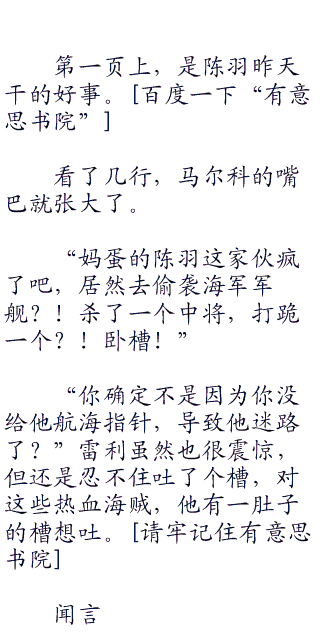 第一页上，是陈羽昨天
干的好事。[百度一下“有意
思书院”]
看了几行，马尔科的嘴
巴就张大了。
“妈蛋的陈羽这家伙疯
了吧，居然去偷袭海军军
舰？！杀了一个中将，打跪
一个？！卧槽！”
“你确定不是因为你没
给他航海指针，导致他迷路
了？”雷利虽然也很震惊，
但还是忍不住吐了个槽，对
这些热血海贼，他有一肚子
的槽想吐。[请牢记住有意思
书院]
闻言